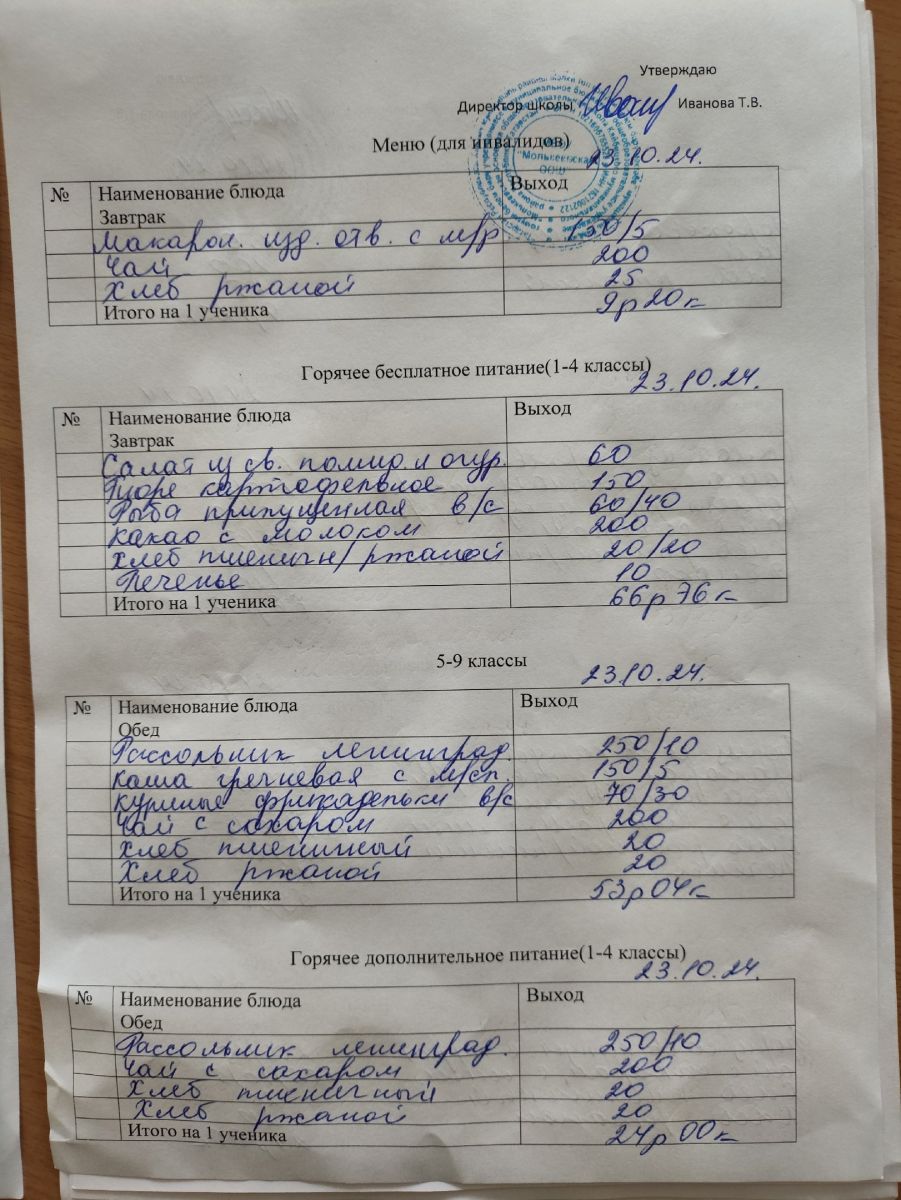 Утверждаю
Директор школы Иванова Т.В.
Меню (для инвалидов)
"Молькеевская
ООШ"
23.10.24.
№ Наименование блюда Выход
Завтрак
Макарон. изд. отв. с м/р 150/5
Чай 200
Хлеб ржаной 25
Итого на 1 ученика 9р20к
Горячее бесплатное питание(1-4 классы)
23.10.24.
№ Наименование блюда Выход
Завтрак
Салат из св. помид. и огур. 60
Пюре картофельное 150
Рыба припущенная в/с 60/40
Какао с молоком 200
Хлеб пшеничн/ржаной 20/20
Печенье 10
Итого на 1 ученика 66р76к
5-9 классы
23.10.24.
№ Наименование блюда Выход
Обед
Рассольник ленинград. 250/10
Каша гречневая с м/сл. 150/5
Куриные фрикадельки в/с 70/30
Чай с сахаром 200
Хлеб пшеничный 20
Хлеб ржаной 20
Итого на 1 ученика 53р04к
Горячее дополнительное питание(1-4 классы)
23.10.24.
№ Наименование блюда Выход
Обед
Рассольник ленинград. 250/10
Чай с сахаром 200
Хлеб пшеничный 20
Хлеб ржаной 20
Итого на 1 ученика 24р00к